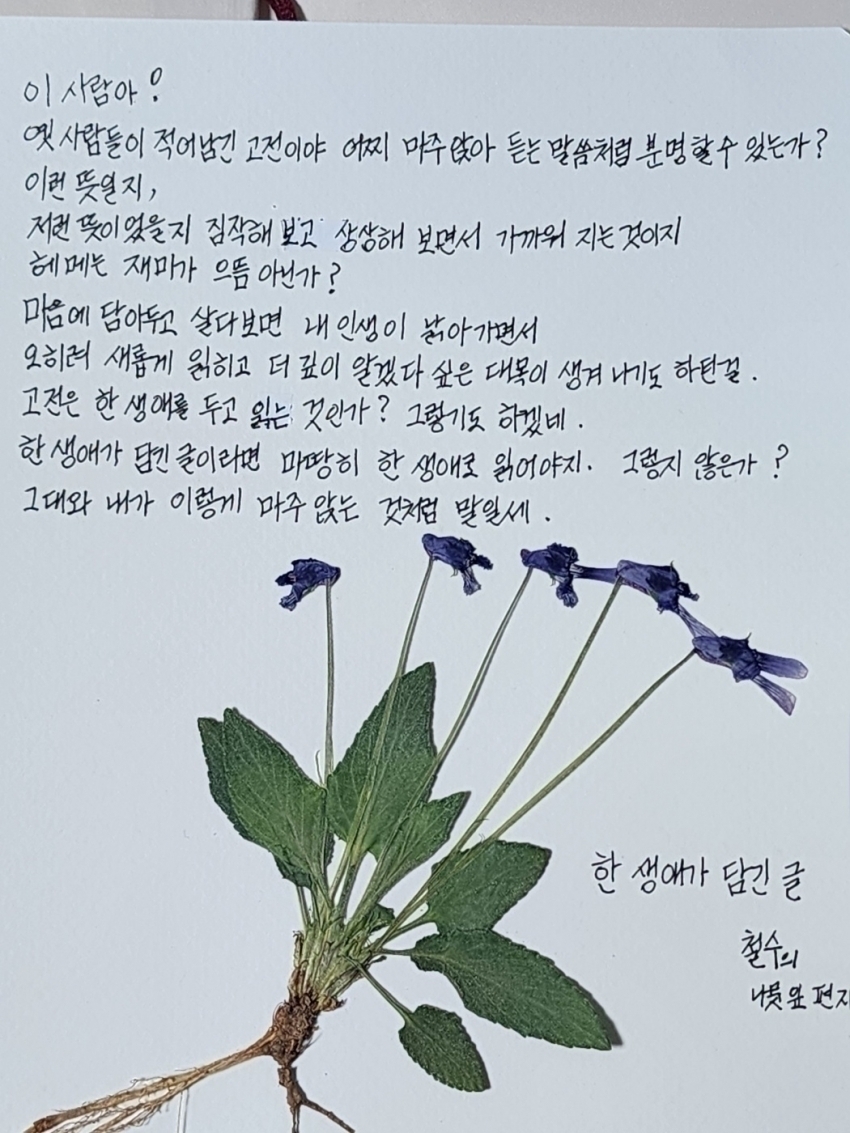 이 사람아!
옛 사람들이 적어남긴 고전이야 어찌 마주앉아 듣는 말씀처럼 분명할 수 있는가?
이런 뜻일지,
저런 뜻이었을지 짐작해 보고 상상해 보면서 가까워 지는것이지
헤메는 재미가 으뜸 아닌가?
마음에 담아두고 살다보면 내 인생이 낡아가면서
오히려 새롭게 읽히고 더 깊이 알겠다 싶은 대목이 생겨 나기도 하던걸.
고전은 한 생애를 두고 읽는 것인가? 그렇기도 하겠네.
한 생애가 담긴 글이라면 마땅히 한 생애로 읽어야지. 그렇지 않은가?
그대와 내가 이렇게 마주 앉는 것처럼 말일세.
한 생애가 담긴 글
철수의
나뭇잎 편지